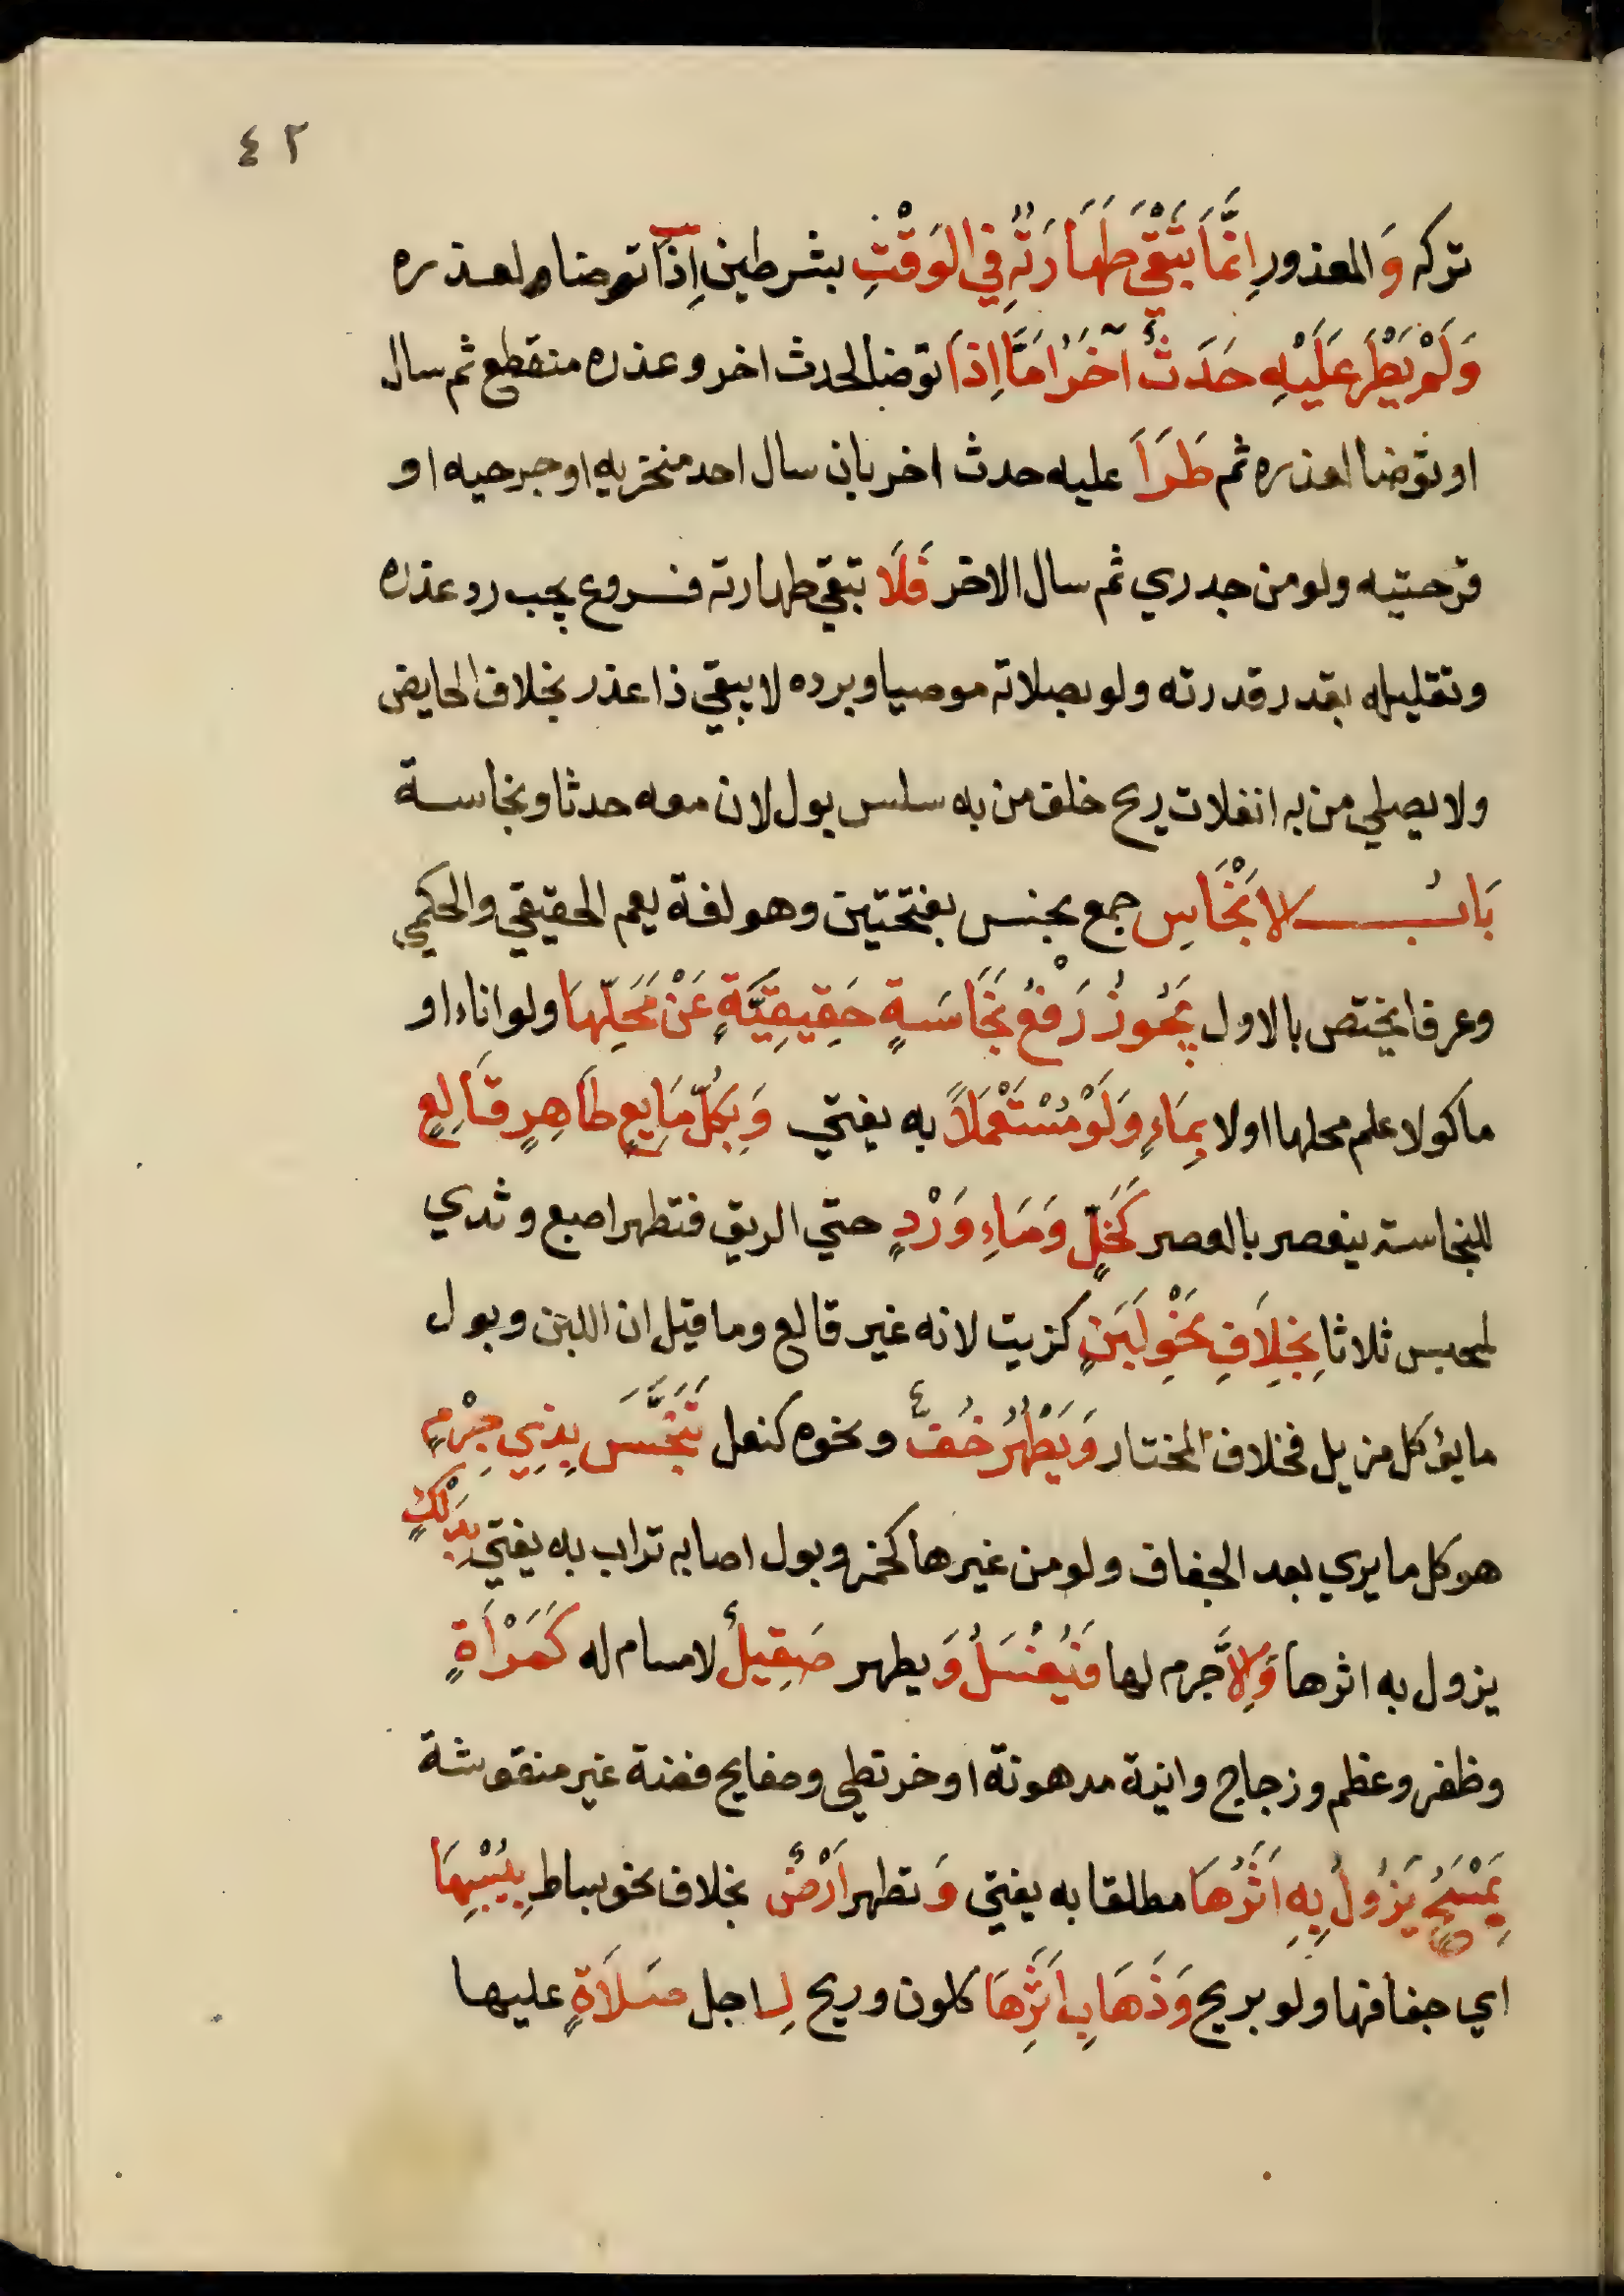 ٤٢
تركه وَالمعذور اِنَّمَا تَبْقَي طَهَارَتُهُ فِي الوَقْتِ بشرطين اِذَا توضا لعذره
وَلَمْ يَطْرَ عَلَيْهِ حَدَثٌ آخَرُ اَمَّا اِذَا توضا لحدث اخر وعذره منقطع ثم سال
او توضا لعذره ثم طَرَاَ عليه حدث اخر بان سال احد منخريه او جرحيه او
قرحتيه ولو من جدري ثم سال الاخر فَلَا تبقي طهارته فروع يجب رد عذره
وتقليله بقدر قدرته ولو بصلاته موميا وبرده لا يبقي ذا عذر بخلاف الحايض
ولا يصلي من به انفلات ريح خلف من به سلس بول لان معه حدثا ونجاسة
بَابُ الاَنْجَاسِ جمع نجس بفتحتين وهو لغة يعم الحقيقي والحكمي
وعرفا يختص بالاول يَجُوزُ رَفْعُ نَجَاسَةٍ حَقِيقِيَّةٍ عَنْ مَحَلِّهَا ولو اناء او
ماكولا علم محلها اولا بِمَاءٍ وَلَوْ مُسْتَعْمَلاً به يفتي وَبِكُلِّ مَايِعٍ طَاهِرٍ قَالِعٍ
للنجاسة ينعصر بالعصر كَخَلٍّ وَمَاءِ وَرْدٍ حتي الريق فتطهر اصبع وثدي
لحس ثلاثا بِخِلَافِ نَحْوِ لَبَنٍ كزيت لانه غير قالع وما قيل ان اللبن وبول
ما يؤكل مزيل فخلاف المختار وَيَطْهُرُ خُفٌّ ونحوه كنعل تَنَجَّسَ بِذِي جِرْمٍ
هو كل ما يري بعد الجفاف ولو من غيرها كخمر وبول اصابه تراب به يفتي بِدَلْكٍ
يزول به اثرها وَاِلَّا جرم لها فَيُغْسَلُ وَ يطهر صَقِيلٌ لا مسام له كَمَرْاَةٍ
وظفر وعظم وزجاج وانية مدهونة او خرتطي وصفايح فضة غير منقوشة
بِمَسْحٍ يَزُولُ بِهِ اَثَرُهَا مطلقا به يفتي وَ تطهر اَرْضٌ بخلاف نحو بساط بِيُبْسِهَا
اي جفافها ولو بريح وَذَهَابِ اَثَرِهَا كلون وريح لِ اجل صَلَاةٍ عليها